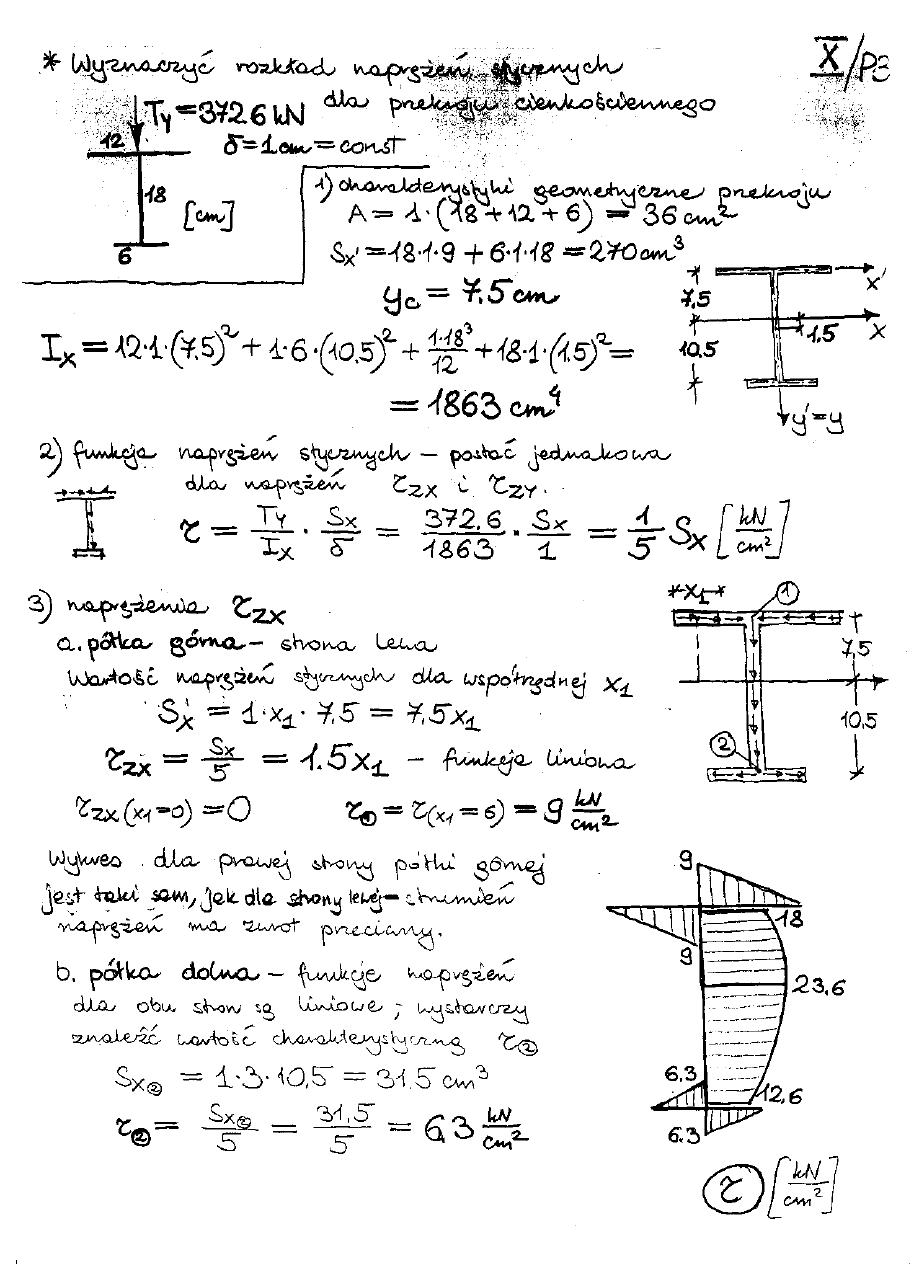 * Wyznaczyć rozkład naprężeń stycznych
dla przekroju cienkościennego
X/P3
Ty = 372.6 kN
δ = 1 cm = const
12
18
[cm]
6
1) charakterystyki geometryczne przekroju
A = 1·(18 + 12 + 6) = 36 cm²
Sx' = 18·1·9 + 6·1·18 = 270 cm³
yc = 7.5 cm
Ix = 12·1·(7,5)² + 1·6·(10,5)² + 1·18³/12 + 18·1·(1.5)² =
= 1863 cm⁴
7,5
10,5
1,5
x'
x
y' = y
2) funkcja naprężeń stycznych – postać jednakowa
dla naprężeń τzx i τzy.
τ = Ty/Ix · Sx/δ = 372.6/1863 · Sx/1 = 1/5 Sx [kN/cm²]
3) naprężenia τzx
a. półka górna – strona lewa
Wartość naprężeń stycznych dla współrzędnej x1
Sx = 1·x1·7.5 = 7.5x1
τzx = Sx/5 = 1.5x1 – funkcja liniowa
τzx(x1=0) = 0 τ① = τ(x1=6) = 9 kN/cm²
x1
①
7,5
②
10,5
Wykres dla prawej strony półki górnej
jest taki sam, jak dla strony lewej – strumień
naprężeń ma zwrot przeciwny.
b. półka dolna – funkcje naprężeń
dla obu stron są liniowe; wystarczy
znaleźć wartość charakterystyczną τ②
Sx② = 1·3·10,5 = 31.5 cm³
τ② = Sx②/5 = 31,5/5 = 6.3 kN/cm²
9
18
9
23,6
6.3
12,6
6.3
τ [kN/cm²]